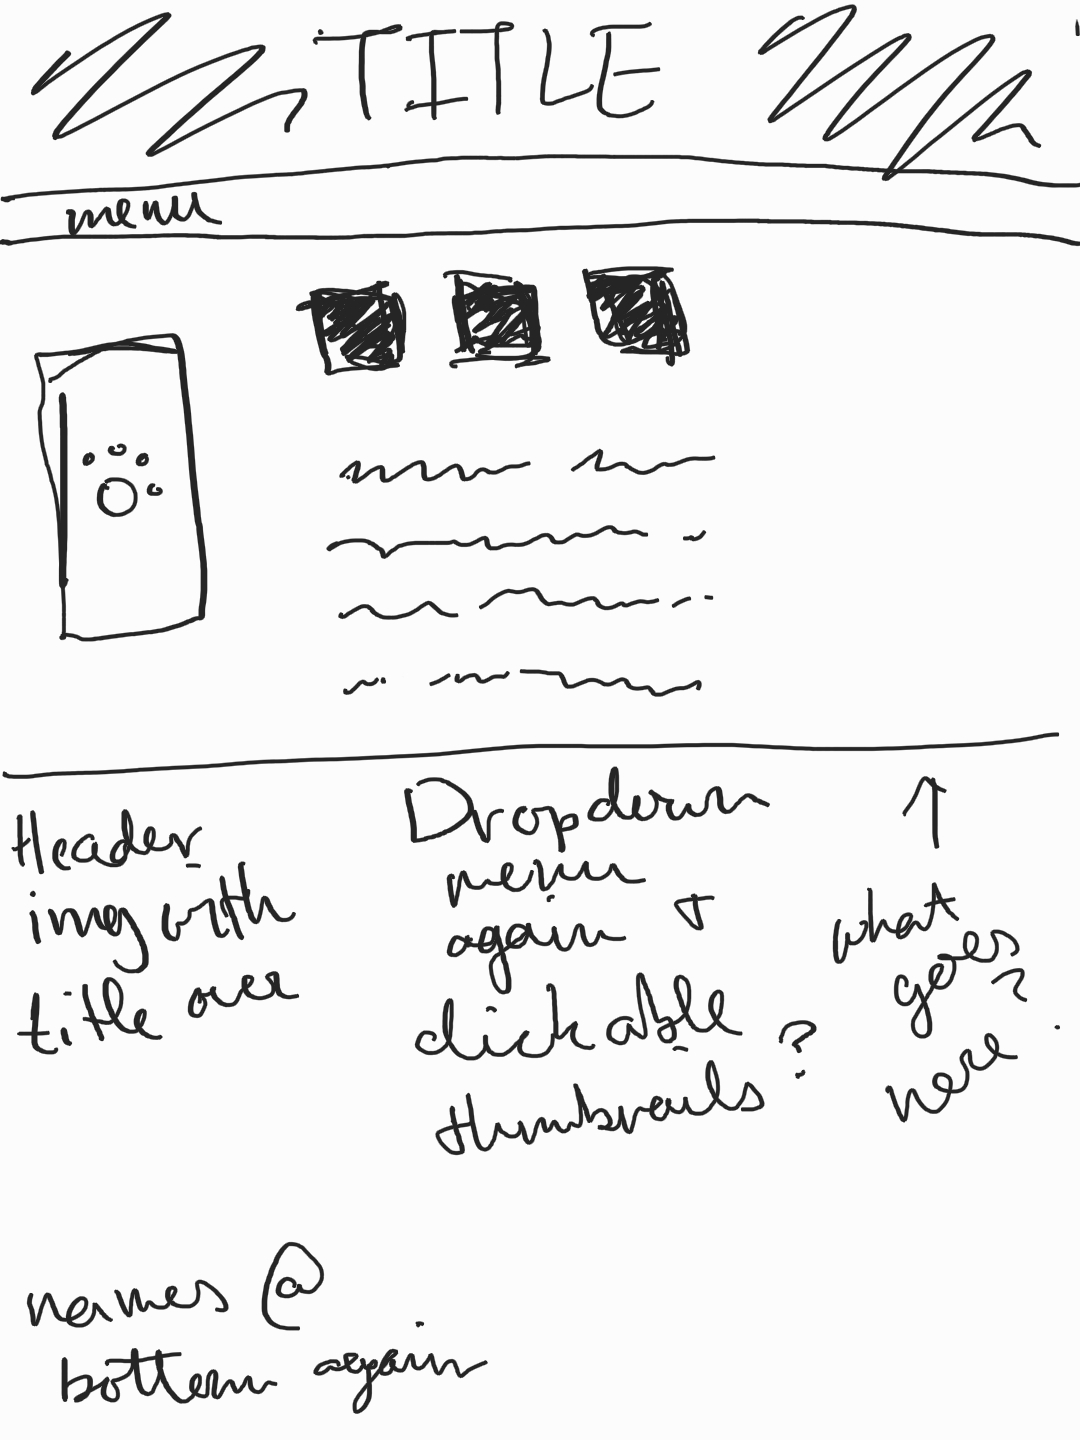 TITLE
menu
Header
img with
title over
Dropdown
menu
again +
clickable
thumbnails?
↑
what
goes
here?
names @
bottom again